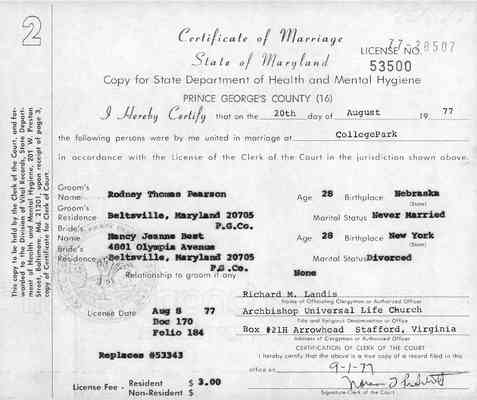 2
Certificate of Marriage
State of Maryland
LICENSE NO.
53500
Copy for State Department of Health and Mental Hygiene
PRINCE GEORGE'S COUNTY (16)
I Hereby Certify that on the 20th day of August 19 77
the following persons were by me united in marriage at CollegePark
in accordance with the License of the Clerk of the Court in the jurisdiction shown above.
Groom's Name Rodney Thomas Pearson Age 28 Birthplace Nebraska
(State)
Groom's Residence Beltsville, Maryland 20705 Marital Status Never Married
P.G.Co.
Bride's Name Nancy Jeanne Best Age 28 Birthplace New York
(State)
Bride's Residence 4801 Olympia Avenue
Beltsville, Maryland 20705 Marital Status Divorced
P.G.Co.
Relationship to groom if any None
Richard M. Landis
Name of Officiating Clergyman or Authorized Officer
License Date Aug 8 77
Archbishop Universal Life Church
Title and Religious Denomination or Office
Doc 170
Folio 184
Box #21H Arrowhead Stafford, Virginia
Address of Clergyman or Authorized Officer
CERTIFICATION OF CLERK OF THE COURT
Replaces #53343
I hereby certify that the above is a true copy of a record filed in this
office on 9-1-77
License Fee - Resident $ 3.00
Non-Resident $
Signature-Clerk of the Court
This copy to be held by the Clerk of the Court, and for-
warded to the Division of Vital Records, State Depart-
ment of Health and Mental Hygiene, 201 W. Preston
Street, Baltimore, Md. 21201, upon receipt of page 3,
copy of Certificate for Clerk of Court.